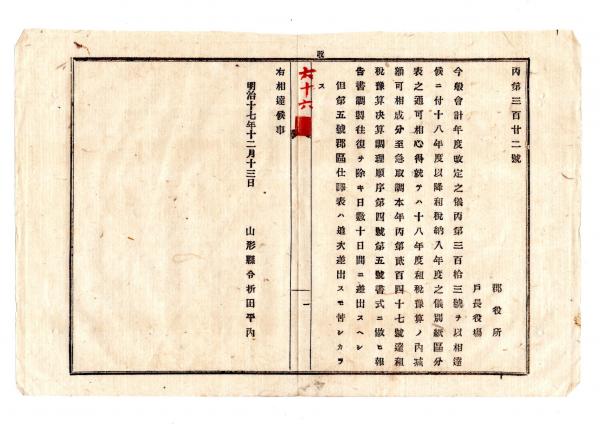 丙第三百廿二號
郡役所
戸長役場
今般會計年度改定之儀丙第三百拾三號ヲ以相達
候ニ付十八年度以降租稅納入年度之儀別紙區分
表之通可相心得就テハ十八年度租稅豫算ノ內減
額可相成分至急取調本年丙第貳百四十七號達租
稅豫算決算調理順序第四號第五號書式ニ傚ヒ報
告書調製往復ヲ除キ日數十日間ニ差出スヘシ
但第五號郡區仕譯表ハ追次差出スモ苦シカラ
ス
六十六
一
右相達候事
明治十七年十二月十三日
山形縣令折田平內